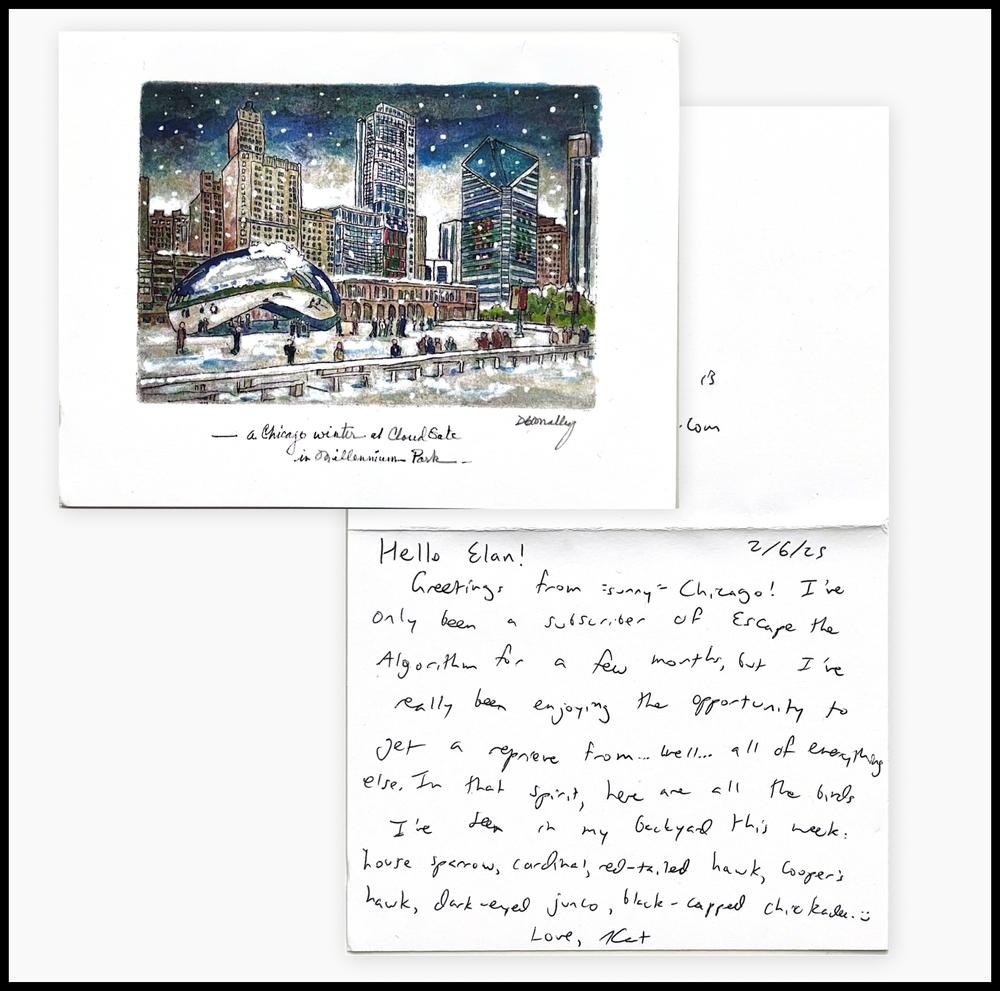 — a Chicago winter at Cloud Gate
in Millennium Park —
.com
Hello Elan!
2/6/25
Greetings from "sunny" Chicago! I've
only been a subscriber of Escape the
Algorithm for a few months, but I've
really been enjoying the opportunity to
get a reprieve from... well... all of everything
else. In that spirit, here are all the birds
I've seen in my backyard this week:
house sparrow, cardinal, red-tailed hawk, Cooper's
hawk, dark-eyed junco, black-capped chickadee. :)
Love, Kat